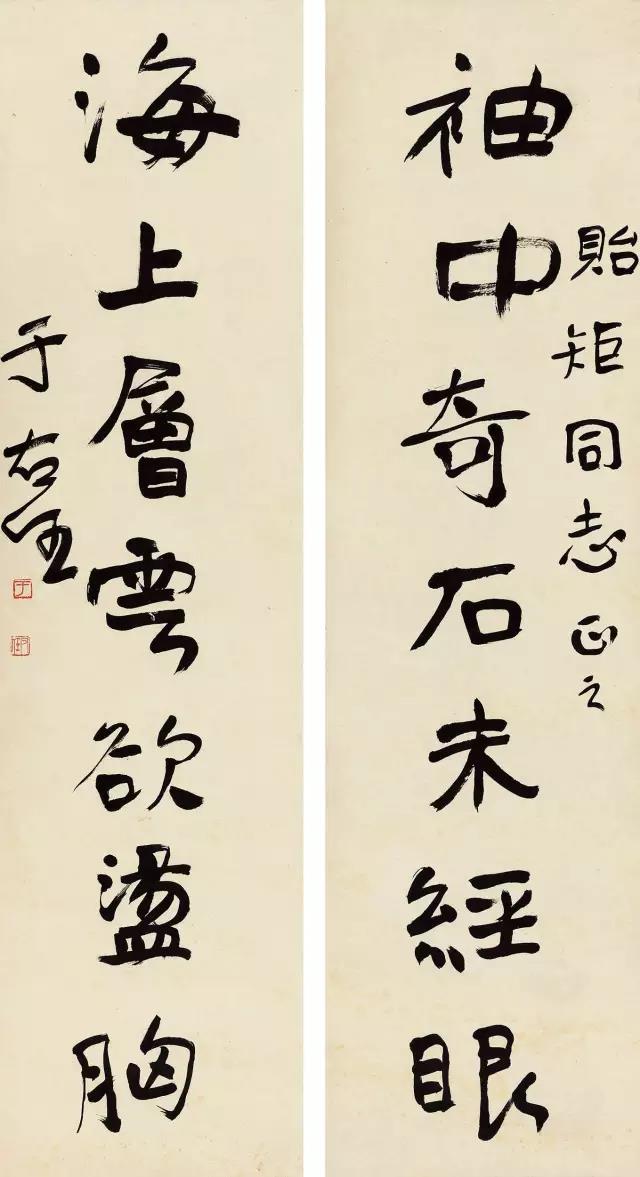 貽矩同志正之
袖中奇石未經眼
海上層雲欲盪胸
于右任
于